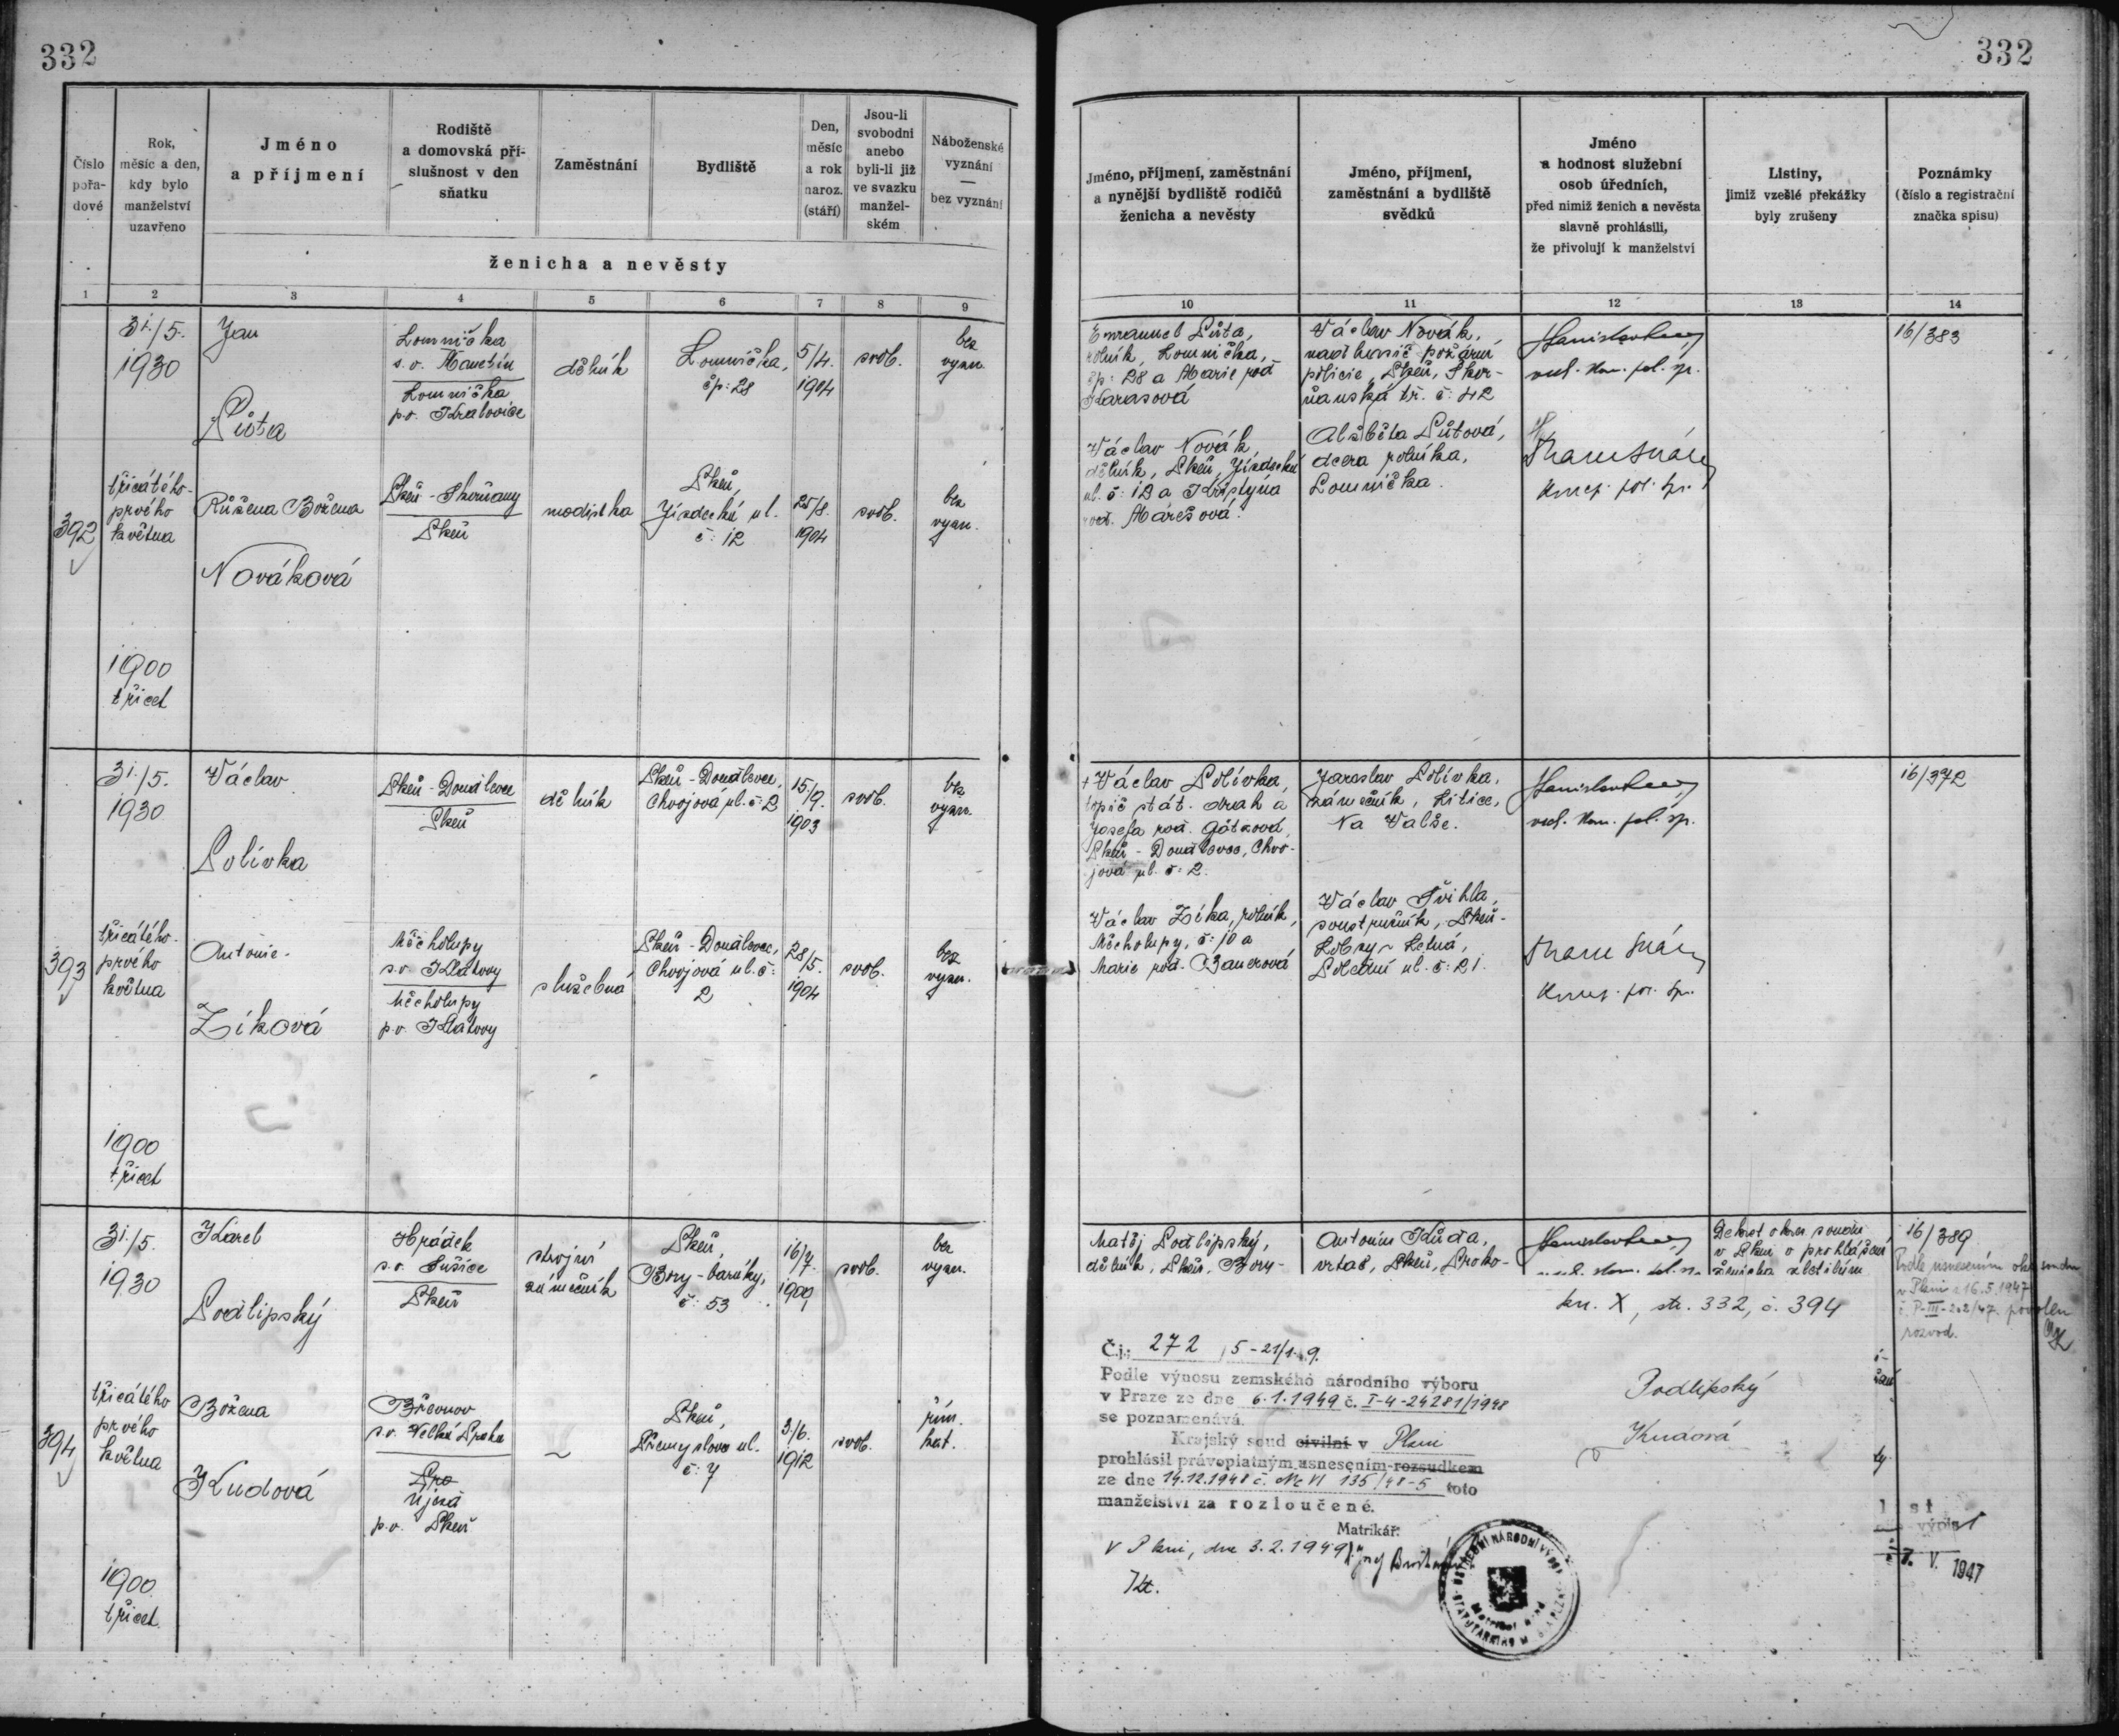 332
332
Číslo
pořa-
dové
Rok,
měsíc a den,
kdy bylo
manželství
uzavřeno
Jméno
a příjmení
Rodiště
a domovská pří-
slušnost v den
sňatku
Zaměstnání
Bydliště
Den,
měsíc
a rok
naroz.
(stáří)
Jsou-li
svobodni
anebo
byli-li již
ve svazku
manžel-
ském
Náboženské
vyznání
—
bez vyznání
ženicha a nevěsty
Jméno, příjmení, zaměstnání
a nynější bydliště rodičů
ženicha a nevěsty
Jméno, příjmení,
zaměstnání a bydliště
svědků
Jméno
a hodnost služební
osob úředních,
před nimiž ženich a nevěsta
slavně prohlásili,
že přivolují k manželství
Listiny,
jimiž vzešlé překážky
byly zrušeny
Poznámky
(číslo a registrační
značka spisu)
1 2 3 4 5 6 7 8 9
10 11 12 13 14
392
31./5.
1930
třicátého-
prvého
května
1900
třicet
Jan
Lůta
Lomnička
s.o. Manětín
Lomnička
p.o. Kralovice
dělník
Lomnička,
čp: 28
5/4.
1904
svob.
bez
vyzn.
Růžena Božena
Nováková
Plzeň - Skvrňany
Plzeň
modistka
Plzeň,
Jízdecká ul.
č: 12
25/8.
1904
svob.
bez
vyzn.
Emanuel Lůta,
rolník, Lomnička,
čp: 28 a Marie rod.
Karasová
Václav Novák,
dělník, Plzeň, Jízdecká
ul. č: 12 a Kristýna
rod. Marešová.
Václav Novák,
požární
policie, Plzeň, Skvr-
ňanská tř. č: 42
Alžběta Lůtová,
dcera rolníka,
Lomnička.
pol. spr.
16/383
393
31./5.
1930
třicátého-
prvého
května
1900
třicet
Václav
Polívka
Plzeň - Doudlevce
Plzeň
dělník
Plzeň - Doudlevce,
Chvojová ul. č: 2
15/9.
1903
svob.
bez
vyzn.
Antonie
Zíková
Měcholupy
s.o. Klatovy
Měcholupy
p.o. Klatovy
služebná
Plzeň - Doudlevce,
Chvojová ul. č:
2
28/5.
1904
svob.
bez
vyzn.
† Václav Polívka,
topič stát. drah a
Josefa rod. Götzová,
Plzeň - Doudlevce, Chvo-
jová ul. č: 2.
Václav Zíka, rolník,
Měcholupy, č: 10 a
Marie rod. Bauerová
Jaroslav Polívka,
zámečník, Litice,
Na Valše.
Václav Švihla,
soustružník, Plzeň-
Lobzy - Letná,
Polední ul. č: 21.
pol. spr.
16/372
394
31./5.
1930
třicátého
prvého
května
1900
třicet
Karel
Podlipský
Hrádek
s.o. Sušice
Plzeň
strojní
zámečník
Plzeň,
Bory - baráky,
č: 53
16/7.
1909
svob.
bez
vyzn.
Božena
Kudová
Břevnov
s.o. Velká Praha
Újezd
p.o. Plzeň
~
Plzeň,
Přemyslova ul.
č: 7
3/6.
1912
svob.
řím.
kat.
Matěj Podlipský,
dělník, Plzeň, Bory-
Antonín Kuda,
vrtač, Plzeň, Proko-
Dekret okres. soudu
v Plzni o prohlášení
ženicha zletilým
16/389
Podle usnesením okr. soudu
v Plzni z 16.5.1947
č. P-III-202/47. povolen
rozvod.
kn. X, str. 332, č. 394
Č.j.: 272 / 5-21/1.-9.
Podle výnosu zemského národního výboru
v Praze ze dne 6.1.1949 č. I-4-24281/1948
se poznamenává.
Krajský soud civilní v Plzni
prohlásil právoplatným usnesením-rozsudkem
ze dne 14.12.1948 č. Nc VI 135/48-5 toto
manželství za rozloučené.
Matrikář:
V Plzni, dne 3.2.1949
Podlipský
Kudová
výpis
7. V. 1947